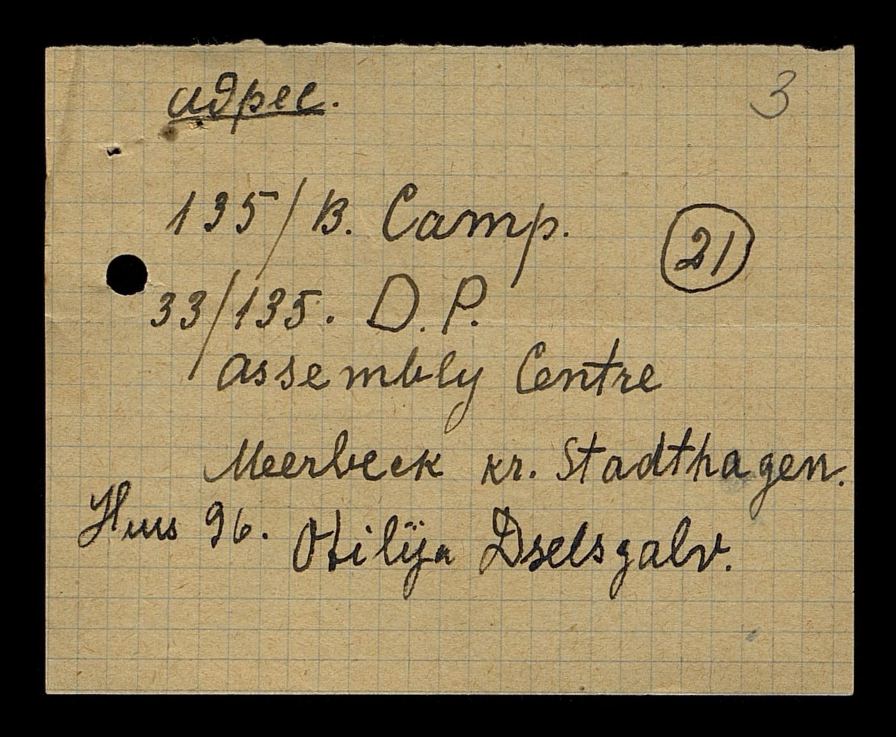 адрес.
3
135/B. Camp.
21
33/135. D.P.
assembly Centre
Meerbeck kr. Stadthagen.
Hus 96. Otilija Dselsgalv.